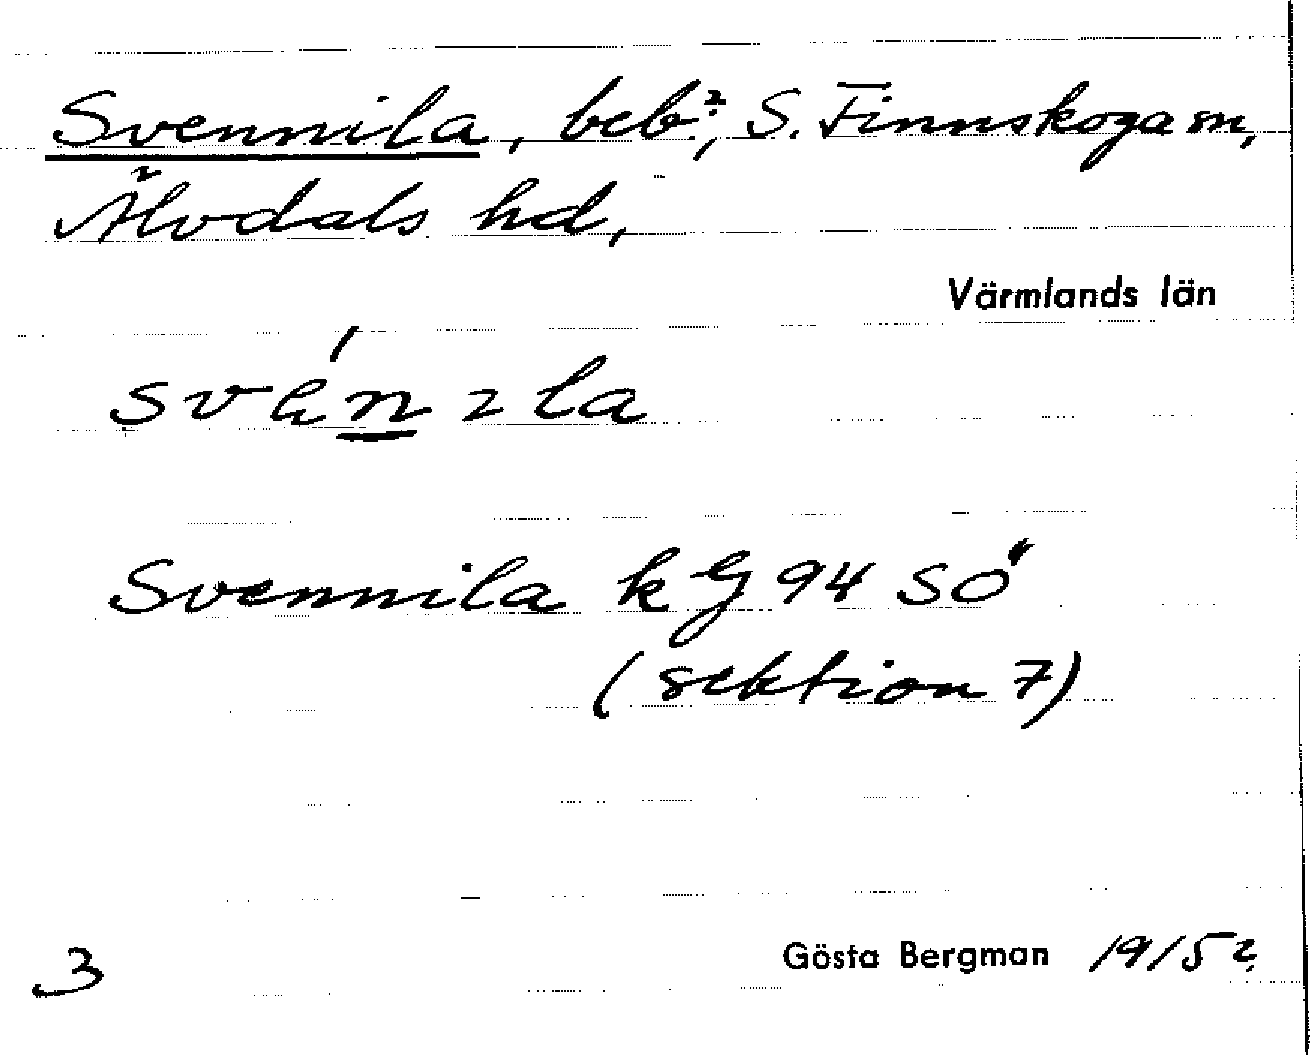 Svennila, beb.?, S. Finnskoga sn,
Älvdals hd,
Värmlands län
Svennila k G 94 SÖ
(sektion 7)
3
Gösta Bergman 1915?